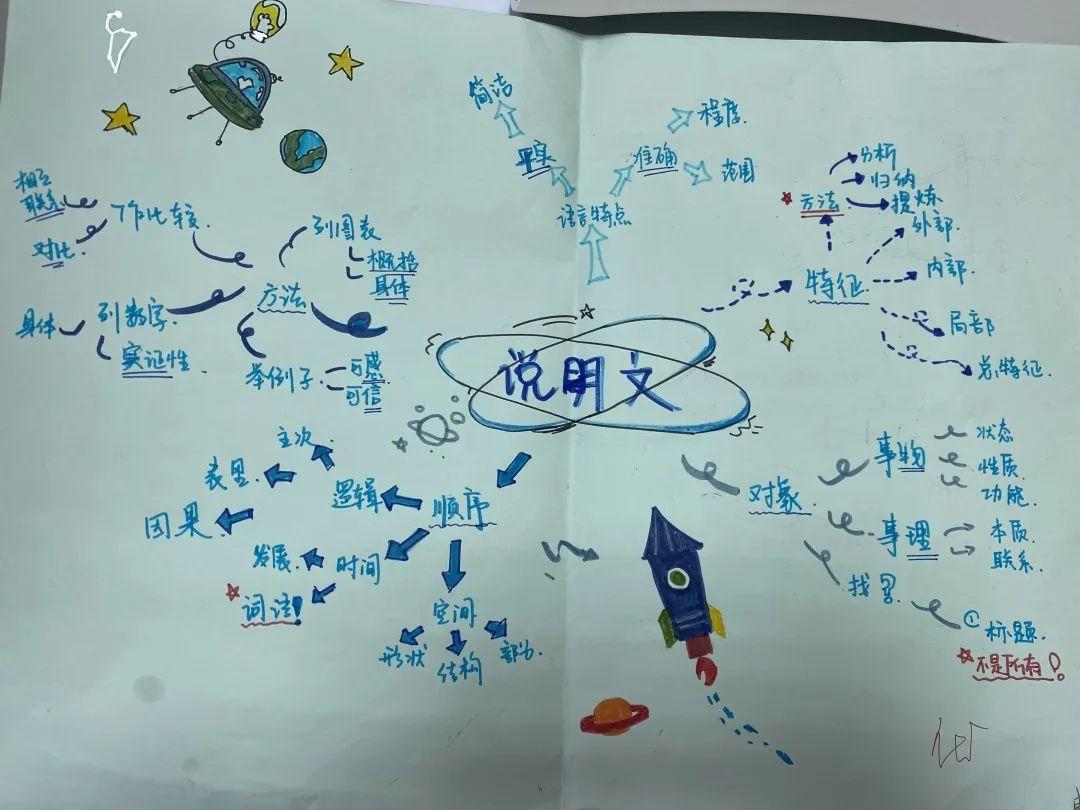 说明文
语言特点
平实
简洁
准确
程度.
范围
特征
方法
分析
归纳
提炼
外部.
内部.
局部
总特征.
对象
事物
状态
性质.
功能.
事理
本质.
联系.
找
① 标题.
不是所有!
顺序
逻辑
主次
表里.
因果.
时间
发展.
词语!
空间
形状
结构
部分.
方法
作比较
相互
联系
对比
列图表
概括
具体
列数字
具体
实证性
举例子
可感
可信